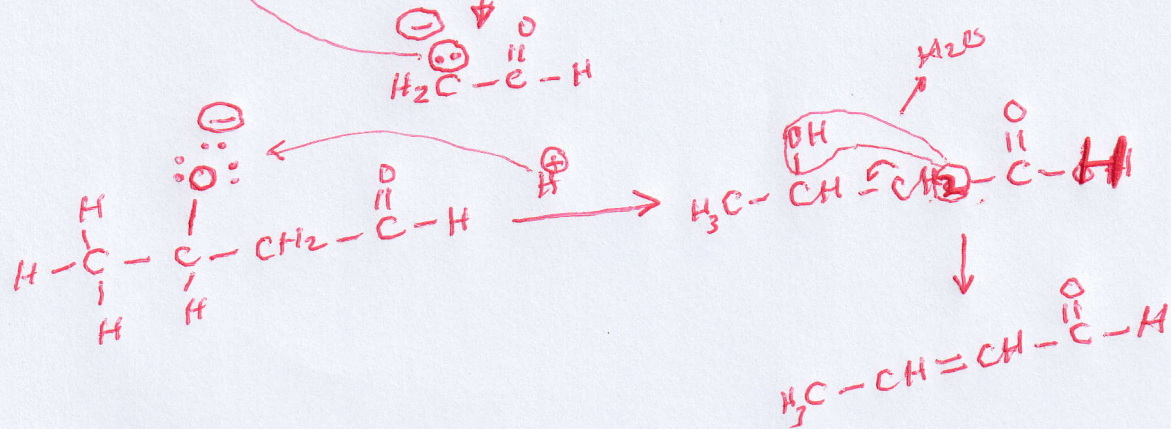 ⊖ O
H₂C̈ – C – H
H₂O
⊖
:Ö: H⊕ OH O
H O
H – C – C – CH₂ – C – H → H₃C – CH – CH₂ – C – H
H H
O
H₃C – CH = CH – C – H